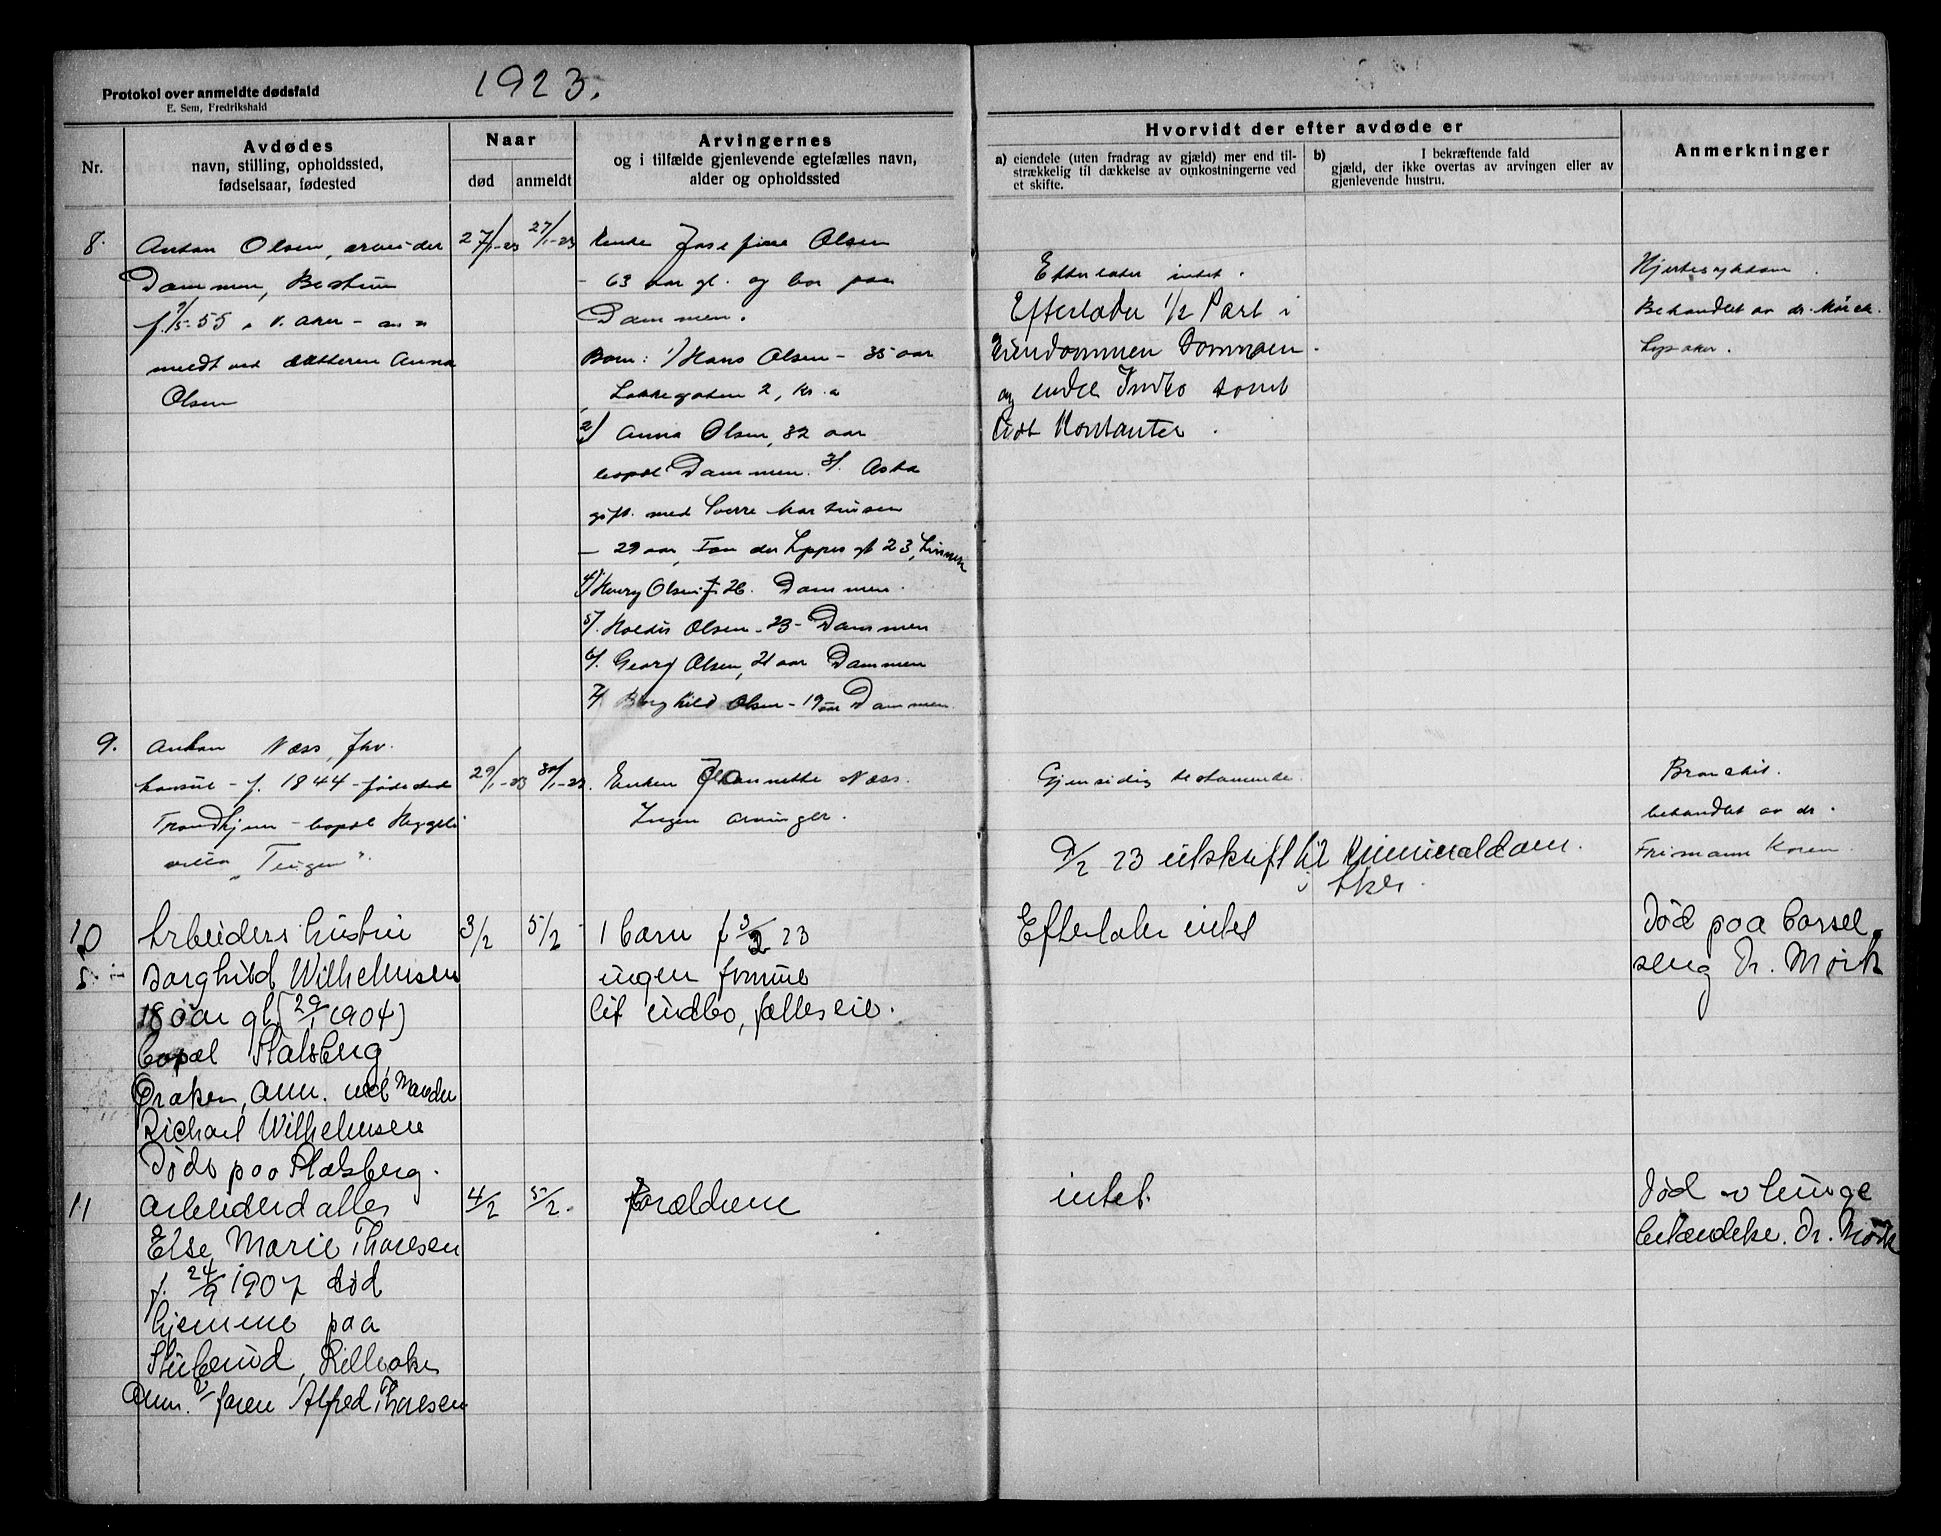 1923.
Protokol over anmeldte dødsfald
E. Sem, Fredrikshald
Nr.
Avdødes
navn, stilling, opholdssted,
fødselsaar, fødested
Naar
død
anmeldt
Arvingernes
og i tilfælde gjenlevende egtefælles navn,
alder og opholdssted
Hvorvidt der efter avdøde er
a) eiendele (uten fradrag av gjæld) mer end til-
strækkelig til dækkelse av omkostningerne ved
et skifte.
b) I bekræftende fald
gjæld, der ikke overtas av arvingen eller av
gjenlevende hustru.
Anmerkninger
8.
Anton Olsen, arbeider
Dammen, Bestum
f. 9/5-55, V. Aker - an-
meldt ved datteren Anna
Olsen
27/1-23
27/1-23
Enke Josefine Olsen
- 63 aar gl. og bor paa
Dammen.
Barn: 1/ Hans Olsen - 35 aar
Løkkegaten 2, Kr.a
2/ Anna Olsen, 32 aar
bopæl Dammen. 3/. Asta
gift. med Sverre Martinsen
- 29 aar, 23,
4/ Henry Olsen f. 26. Dammen.
5/. Olsen - 23 - Dammen
6/. Georg Olsen, 21 aar Dammen
7/ Borghild Olsen - 19 aar Dammen.
Efterlater intet.
Efterlader 1/2 Part i
Eiendommen Dammen.
og endel Indbo samt
lidt Kontanter.
Hjertesykdom.
Behandlet av dr. Mørck.
Lysaker.
9.
Anton Næss, fhv.
konsul - f. 1844 - fødested
Trondhjem - bopæl Heggeli
villa "Teigen".
29/1-23
30/1-23.
Enken Jeannette Næss.
Ingen arvinger.
Gjensidig testamente.
9/2 23 utskrift til Kriminaldom.
i Aker.
Bronchit.
behandlet av dr.
Frimann Koren.
10
Arbeiders hustru
Borghild Wilhelmsen
18 aar gl (29/1 1904)
bopæl Stalsberg,
Øraken, anm. ved Manden
Richart Wilhelmsen
Døde paa Stalsberg.
3/2
5/2
1 barn f 3/2 23
ingen formue
lit indbo, fælleseie.
Efterlater intet
Død paa barsel
seng Dr. Mørk
11
Arbeiderdatter
Else Marie Thoresen
f. 24/9 1907 død
hjemme paa
Stuberud, Lilleaker
Anm. v/ faren Alfred Thoresen
4/2
5/2.
Forældrene
intet.
Død av lunge
betændelse. Dr. Mørk